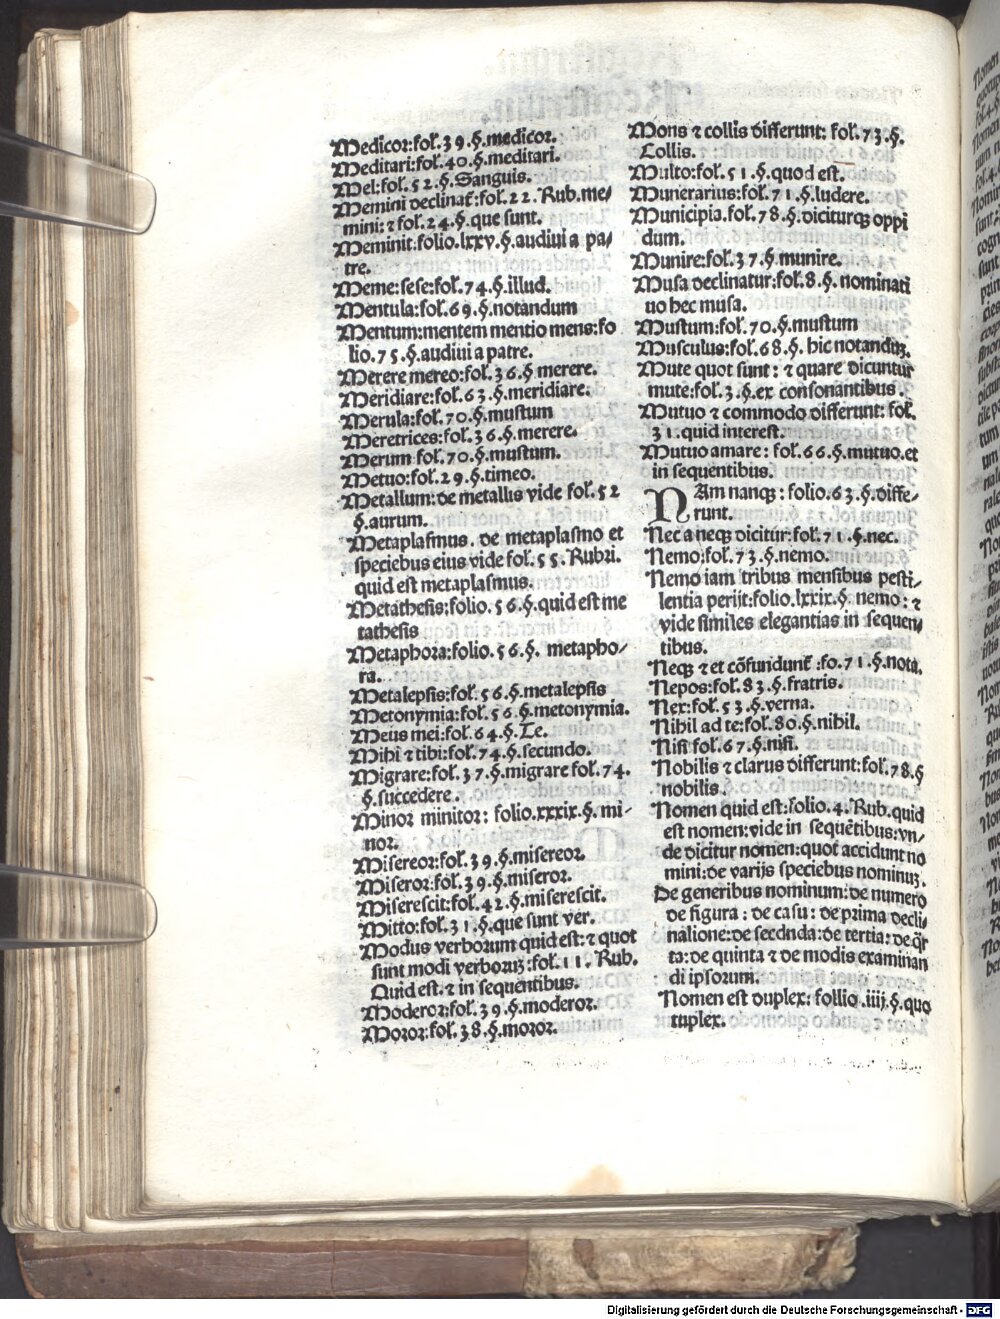 Medicor:fol.39.§.medicor.
Meditari:fol.40.§.meditari.
Mel:fol.52.§.Sanguis.
Memini declinat̃:fol.22.Rub.me/
mini:⁊ fol.24.§.que sunt.
Meminit:folio.lxxv.§.audiui a pa/
tre.
Meme:sese:fol.74.§.illud.
Mentula:fol.69.§.notandum
Mentum:mentem mentio mens:fo
lio.75.§.audiui a patre.
Merere mereo:fol.36.§ merere.
Meridiare:fol.63.§.meridiare.
Merula:fol.70.§.mustum
Meretrices:fol.36.§.merere.
Merum fol.70.§.mustum.
Metuo:fol.29.§.timeo.
Metallum:de metallis vide fol.52
§.aurum.
Metaplasmus. de metaplasmo et
speciebus eius vide fol.55.Rubri.
quid est metaplasmus.
Metathesis:folio.56.§.quid est me
tathesis
Metaphora:folio.56.§. metapho/
ra.
Metalepsis:fol.56.§.metalepsis
Metonymia:fol.56.§.metonymia.
Meus mei:fol.64.§.Te.
Mihi ⁊ tibi:fol.74.§.secundo.
Migrare:fol.37.§.migrare fol.74.
§.succedere.
Minor minitor: folio.xxxix.§.mi-
nor.
Misereor:fol.39.§.misereor.
Miseror:fol.39.§.miseror.
Miserescit:fol.42.§.miserescit.
Mitto:fol.31.§.que sunt ver.
Modus verborum quid est:⁊ quot
sunt modi verborꝝ:fol.11.Rub.
Quid est.⁊ in sequentibus.
Moderor:fol.39.§.moderor.
Moror:fol.38.§.moror.
Mons ⁊ collis differunt: fol.73.§.
Collis.
Multo:fol.51.§.quod est.
Munerarius:fol.71.§.ludere.
Municipia.fol.78.§.diciturqꝫ oppi
dum.
Munire:fol.37.§.munire.
Musa declinatur:fol.8.§.nominati
uo hec musa.
Mustum:fol.70.§.mustum
Musculus:fol.68.§.hic notandũ.
Mute quot sunt: ⁊ quare dicuntur
mute:fol.3.§.ex consonantibus.
Mutuo ⁊ commodo differunt: fol.
31.quid interest.
Mutuo amare: fol.66.§.mutuo.et
in sequentibus.
NAm nanqꝫ: folio.63.§.diffe/
runt.
Nec a neqꝫ dicitur:fol.71.§.nec.
Nemo:fol.73.§.nemo.
Nemo iam tribus mensibus pesti/
lentia perijt:folio.lxxix.§. nemo: ⁊
vide similes elegantias in sequen/
tibus.
Neqꝫ ⁊ et cõfundunt̃:fo.71.§.nota.
Nepos:fol.83.§.fratris.
Nex:fol.53.§.verna.
Nihil ad te:fol.80.§.nihil.
Nisi fol.67.§.nisi.
Nobilis ⁊ clarus differunt:fol.78.§
nobilis.
Nomen quid est:folio.4.Rub.quid
est nomen:vide in sequẽtibus:vn/
de dicitur nomen:quot accidunt no
mini:de varijs speciebus nominuꝫ.
De generibus nominum:de numero
de figura: de casu: de prima decli/
nalione:de secdnda:de tertia:de q̃r
ta:de quinta ⁊ de modis examinan
di ipsorum.
Nomen est duplex: follio.iiij.§.quo
tuplex.
Digitalisierung gefördert durch die Deutsche Forschungsgemeinschaft - DFG